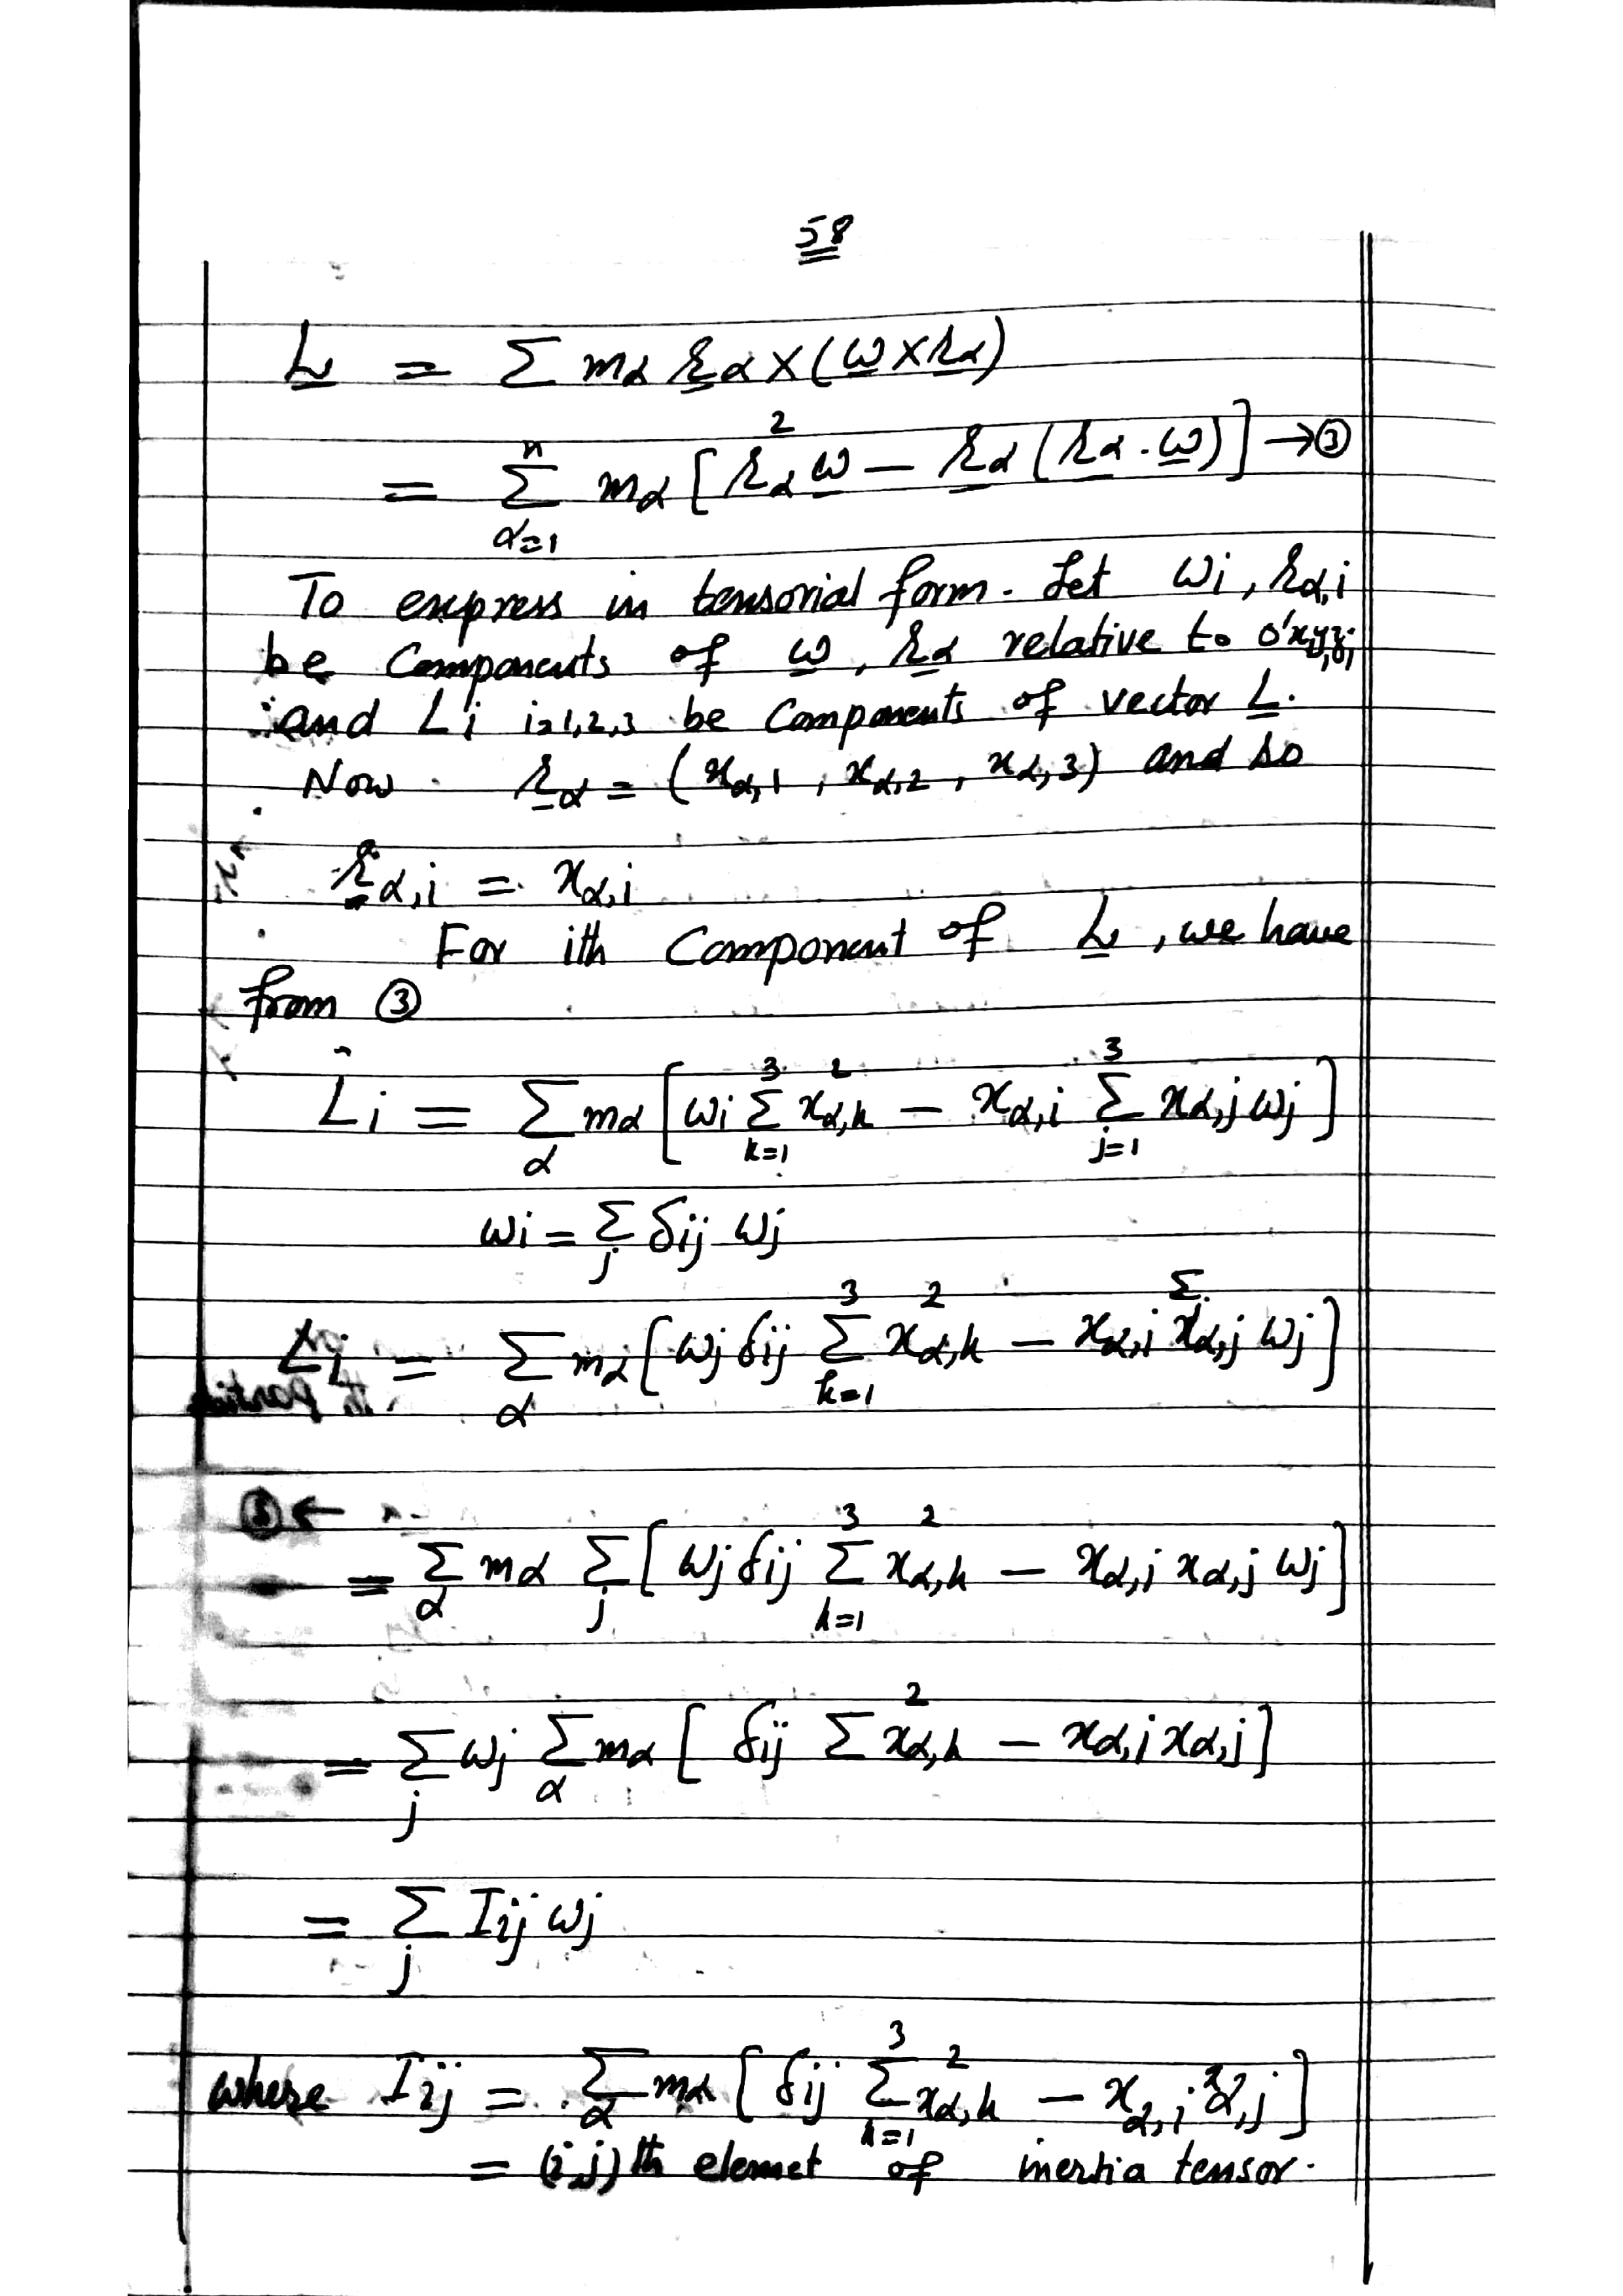 58
L = Σ mα rα × (ω × rα)
= Σ_{α=1}^{n} mα [rα² ω − rα (rα · ω)] → ③
To express in tensorial form. Let ωi, rα,i
be Components of ω, rα relative to
and Li i=1,2,3 be Components of vector L.
Now rα = (xα,1 , xα,2 , xα,3) and so
rα,i = xα,i
For ith Component of L, we have
from ③
Li = Σ_α mα [ωi Σ_{k=1}^{3} x²α,k − xα,i Σ_{j=1}^{3} xα,j ωj]
ωi = Σ_j δij ωj
Li = Σ_α mα [ωj δij Σ_{k=1}^{3} x²α,k − xα,i Σ_j xα,j ωj]
= Σ_α mα Σ_j [ωj δij Σ_{k=1}^{3} x²α,k − xα,i xα,j ωj]
= Σ_j ωj Σ_α mα [δij Σ x²α,k − xα,i xα,j]
= Σ_j Iij ωj
where Iij = Σ_α mα [δij Σ_{k=1}^{3} x²α,k − xα,i xα,j]
= (i,j)th elemet of inertia tensor.